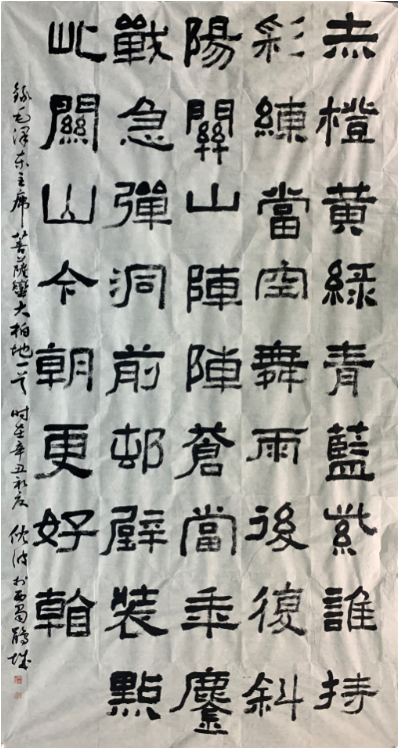 赤橙黄緑青藍紫誰持
彩練當空舞雨後復斜
陽關山陣陣蒼當年鏖
戰急彈洞前邨壁裝點
此關山今朝更好看
錄毛澤东主席菩薩蠻大柏地一首 时在辛丑初夏 波於西蜀鵑城